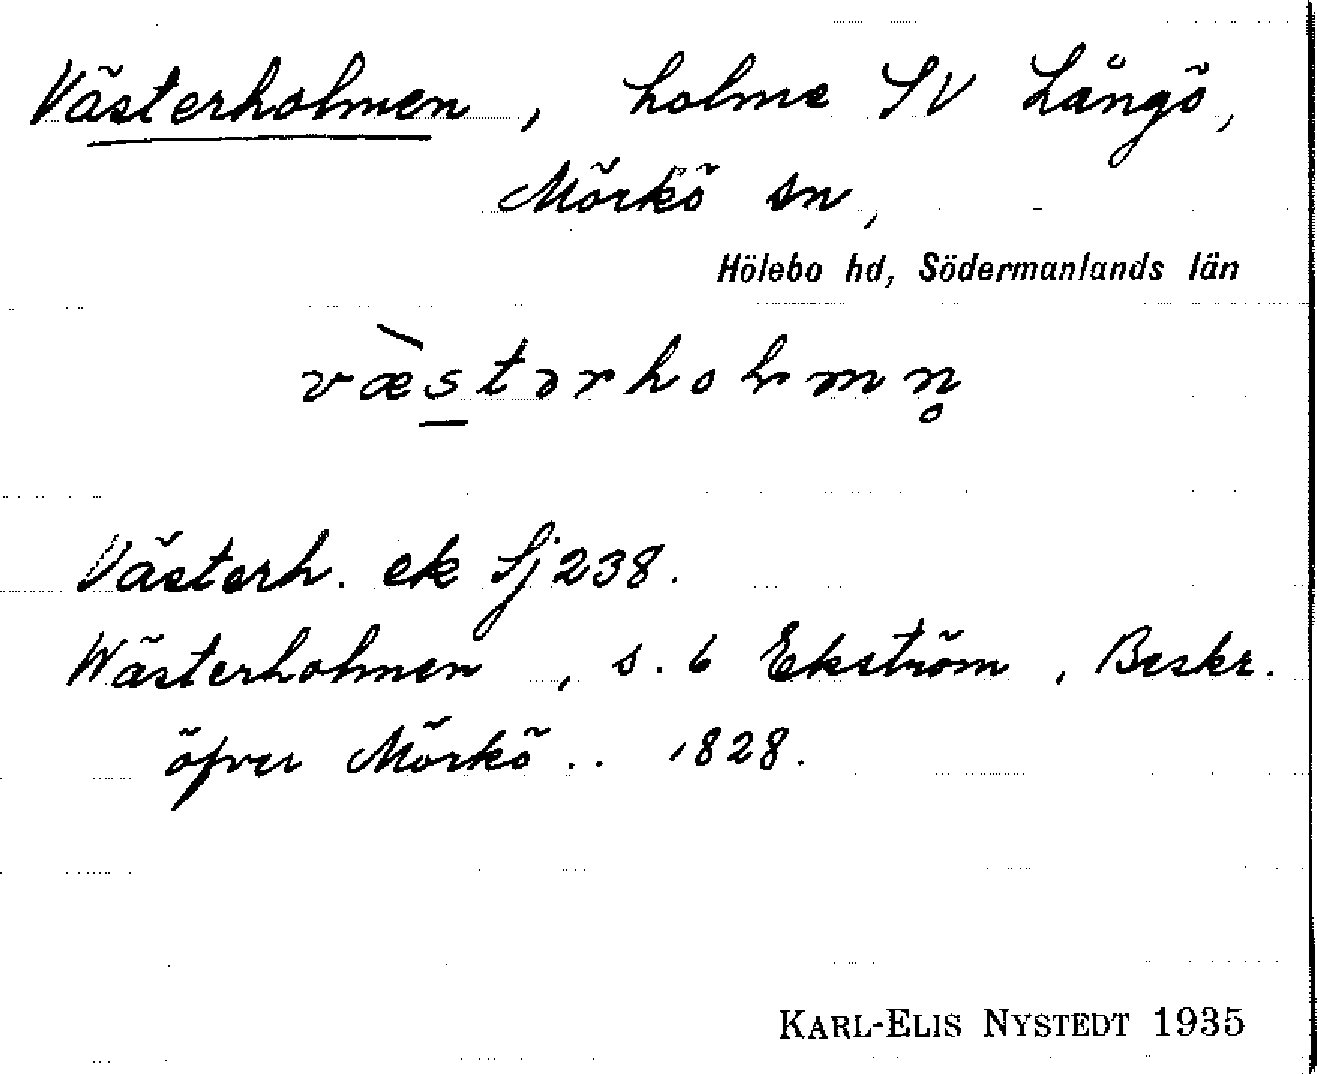 Västerholmen, holme SV Långö,
Mörkö sn,
Hölebo hd, Södermanlands län
væ̀s̲tərholmn̥
Västerh. ek Sj 238.
Wästerholmen, s. 6 Ekström, Beskr.
öfver Mörkö .. 1828.
KARL-ELIS NYSTEDT 1935